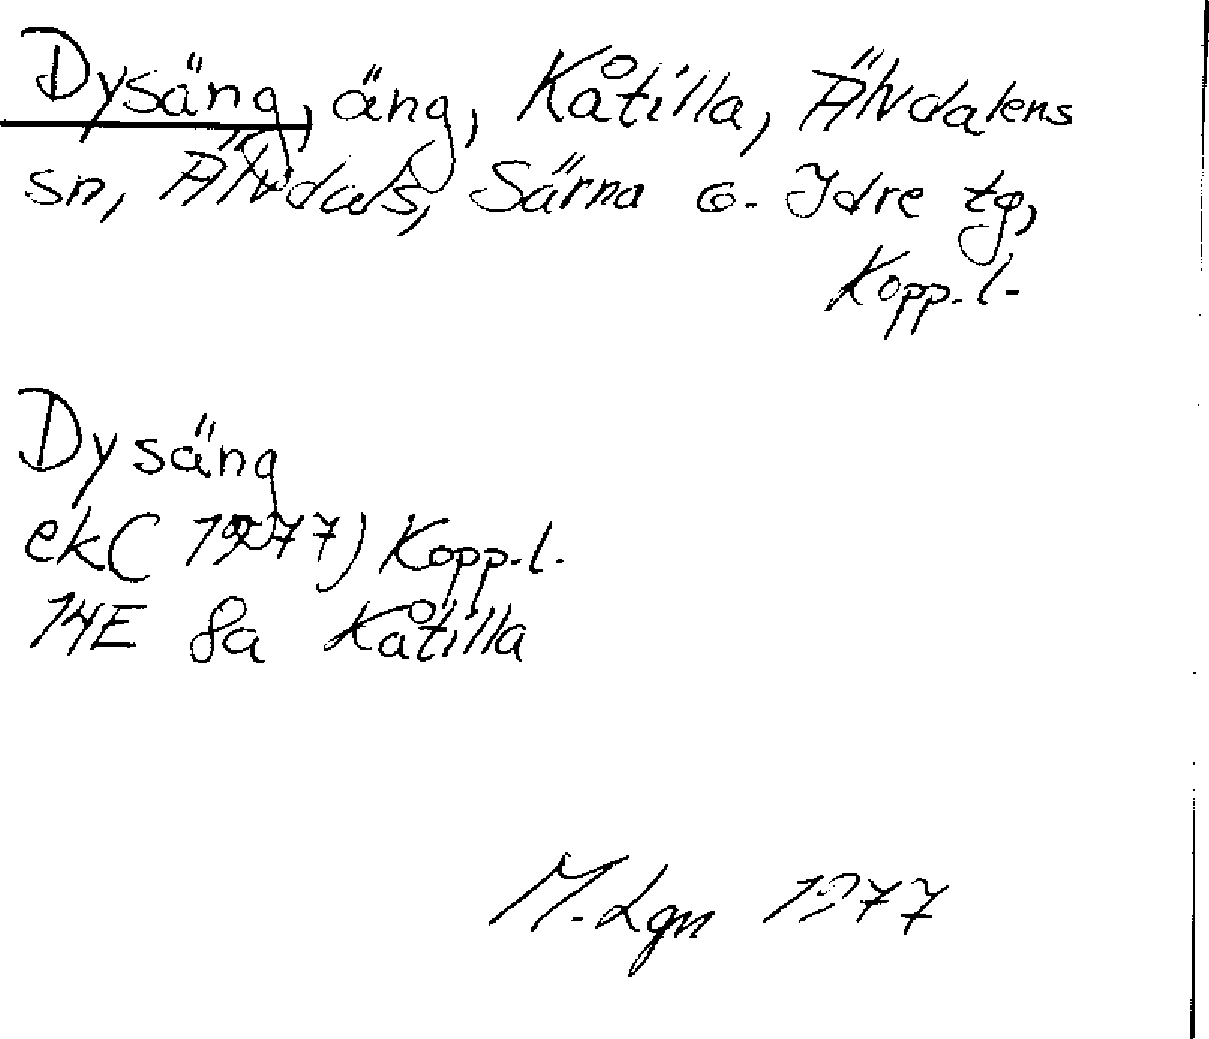 Dysäng, äng, Kåtilla, Älvdalens
sn, Älvdals, Särna o. Idre tg,
Kopp. l.
Dysäng
ek (1977) Kopp. l.
14E 8a Kåtilla
M. Lgn 1977